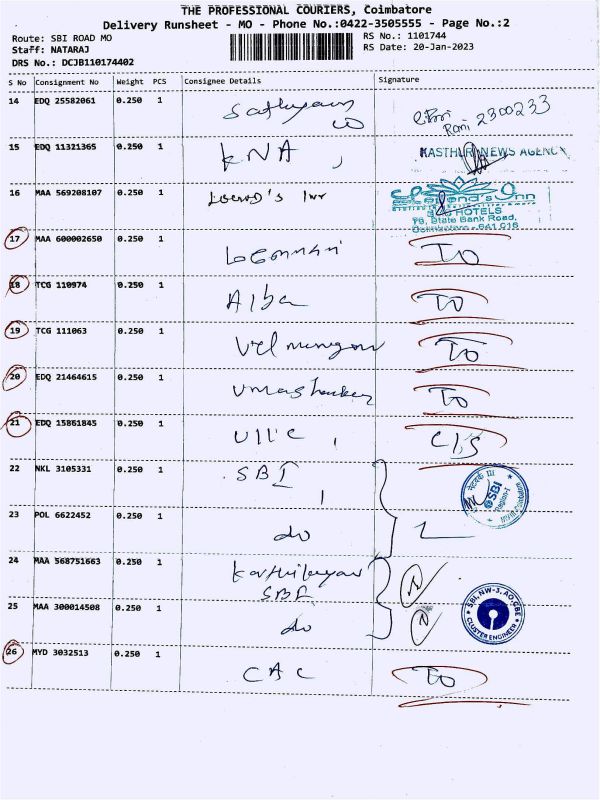 THE PROFESSIONAL COURIERS, Coimbatore
Delivery Runsheet - MO - Phone No.:0422-3505555 - Page No.:2
Route: SBI ROAD MO
RS No.: 1101744
Staff: NATARAJ
RS Date: 20-Jan-2023
DRS No.: DCJB110174402
S No Consignment No Weight PCS Consignee Details Signature
14 EDQ 25582061 0.250 1
Rani 2300233
15 EDQ 11321365 0.250 1 KNA, KASTHURI NEWS AGENCY
16 MAA 569208107 0.250 1
HOTELS
76, State Bank Road,
Coimbatore - 641 018
17 MAA 600002650 0.250 1 TO
18 TCG 110974 0.250 1 Alba TO
19 TCG 111063 0.250 1 Velmurugan TO
20 EDQ 21464615 0.250 1 TO
21 EDQ 15861845 0.250 1
22 NKL 3105331 0.250 1 SBI
SBI
23 POL 6622452 0.250 1 do
24 MAA 568751663 0.250 1
SBI
25 MAA 300014508 0.250 1 do
SBI, NW-3, AO, CBE
CLUSTER ENGINEER
26 MYD 3032513 0.250 1 CAC TO